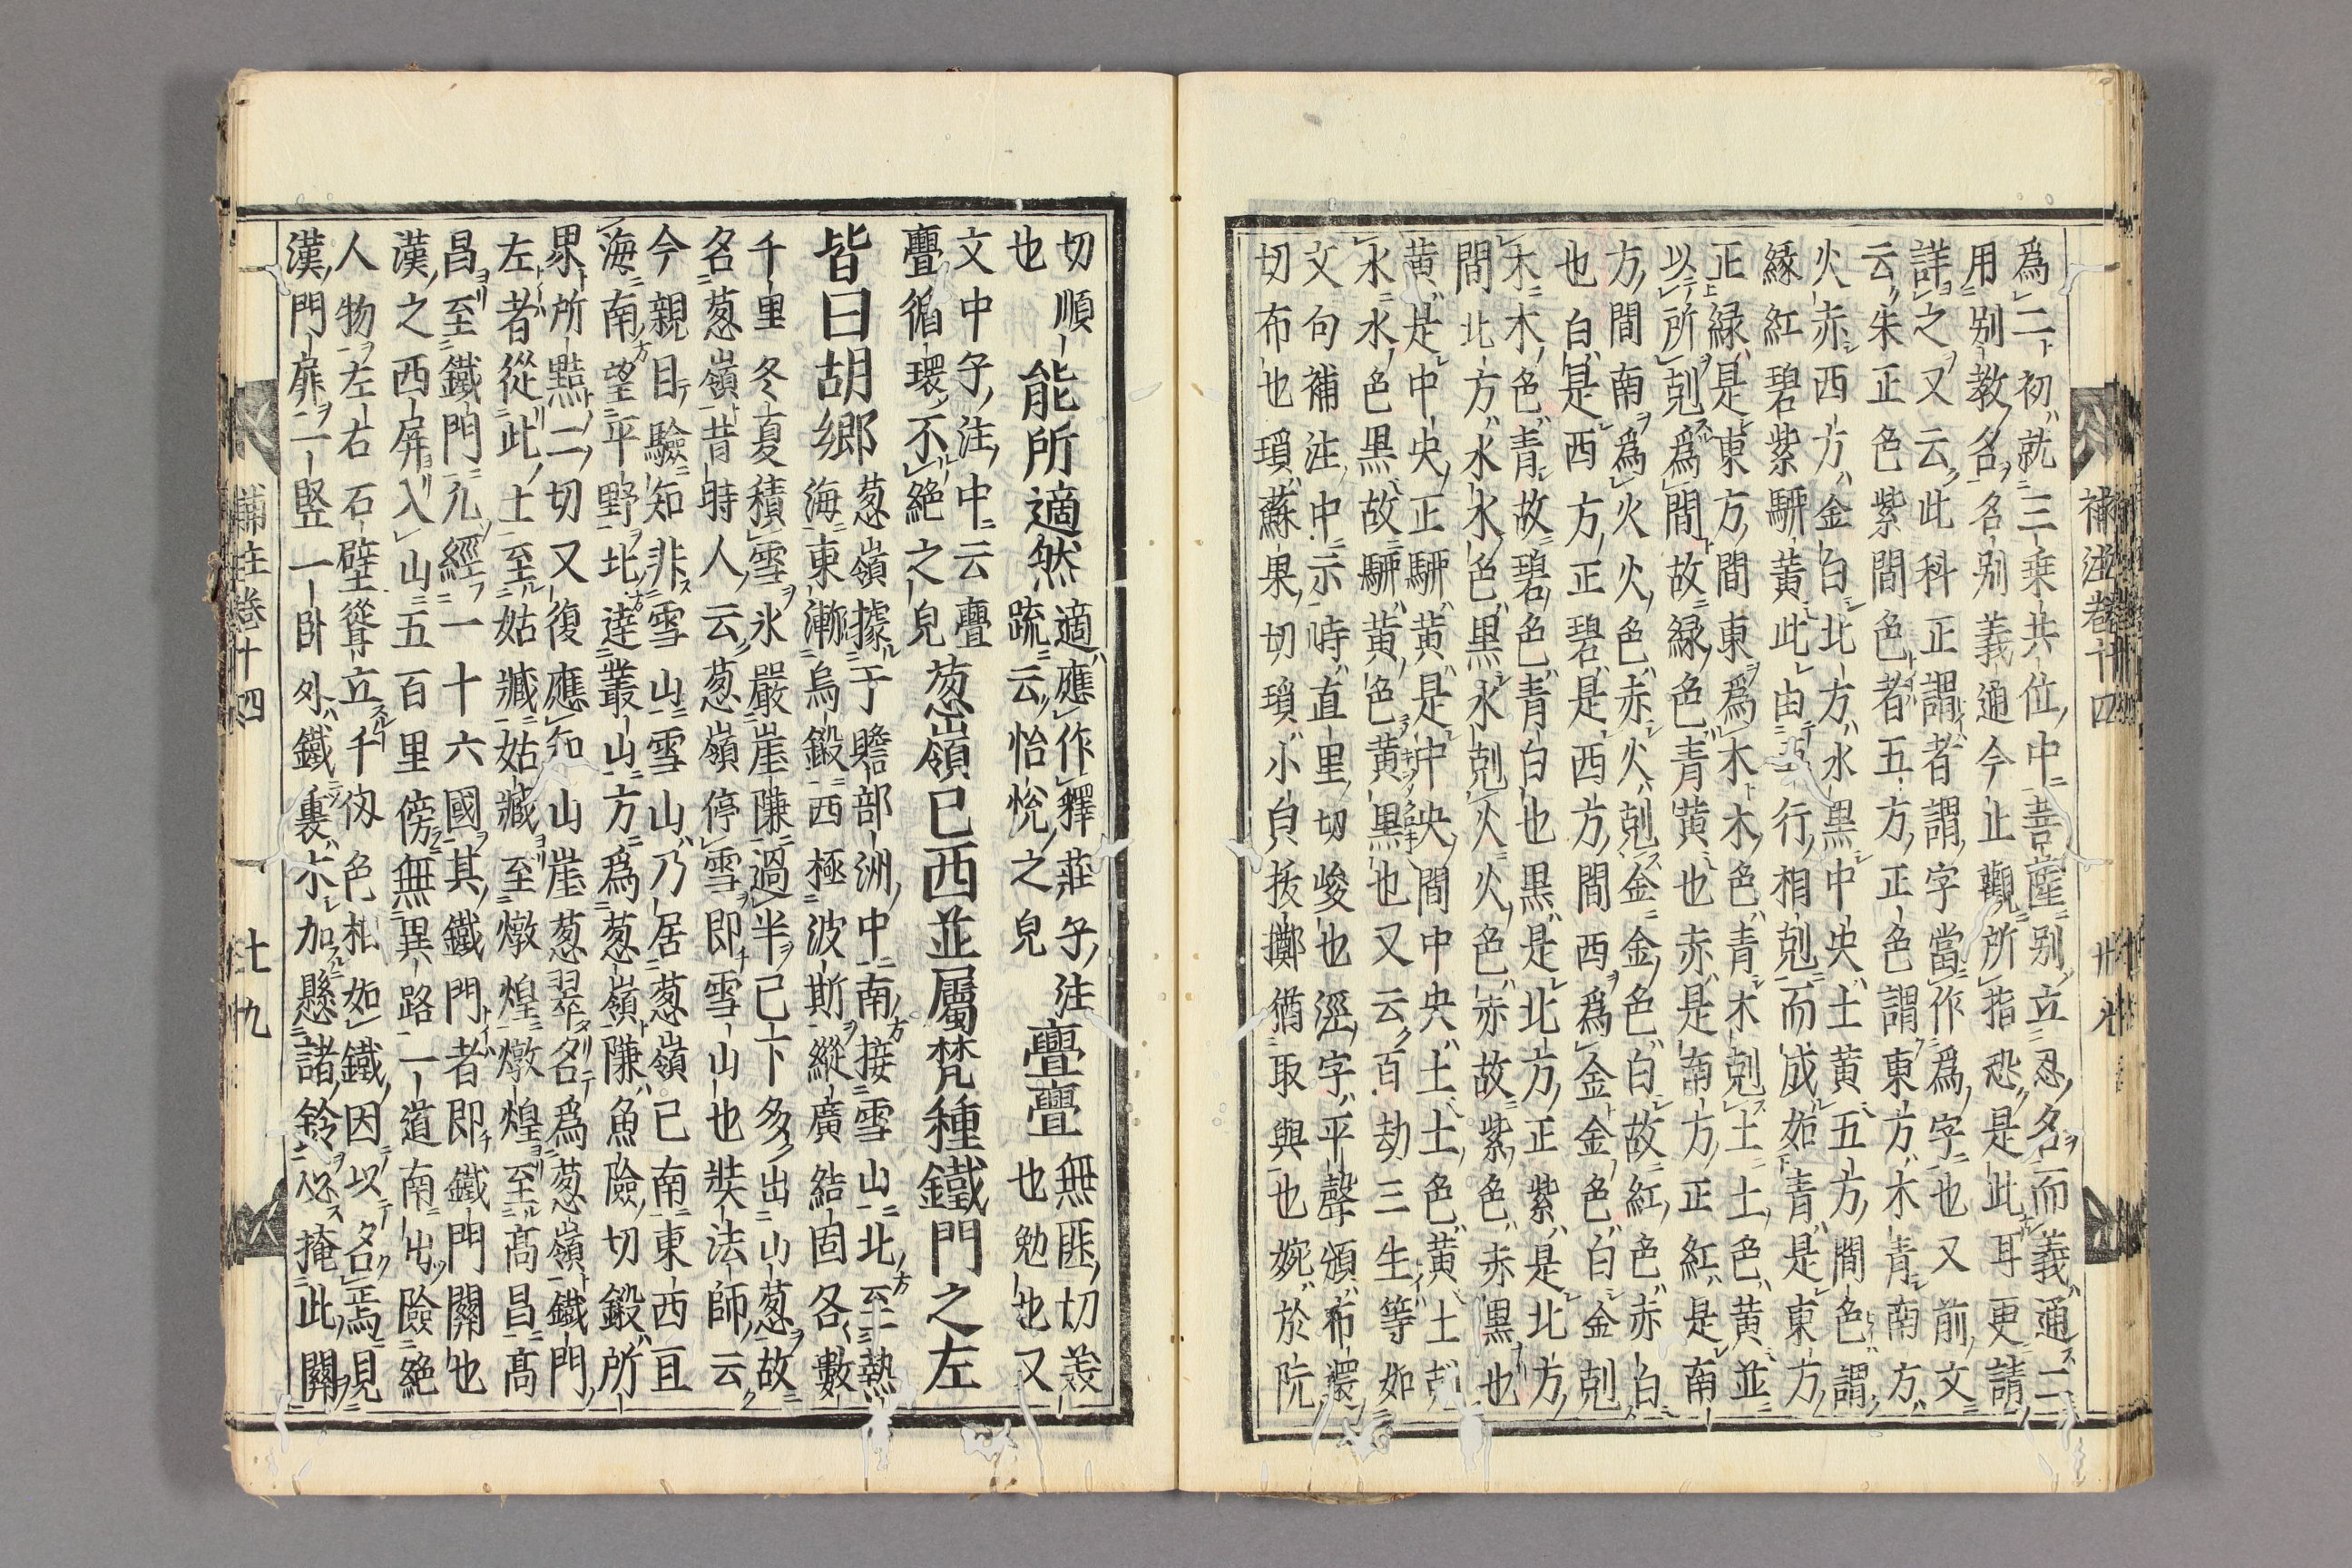 爲二初就三乗共位中菩薩別立忍名而義通二
用別教名名別義通今止觀所指恐是此耳更請
詳之又云此科正謂者謂字當作爲字也又前文
云朱正色紫間色者五方正色謂東方木青南方
火赤西方金白北方水黒中央土黄五方間色謂
緣紅碧紫騈黄此由五行相剋而成如青是東方
正緑是東方間東爲木木色青木剋土土色黄並
以所剋爲間故緑色青黄也赤是南方正紅是南
方間南爲火火色赤火剋金金色白故紅色赤白
也白是西方正碧是西方間西爲金金色白金剋
木木色青故碧色青白也黒是北方正紫是北方
間北方水水色黒水剋火火色赤故紫色赤黒也
黄是中央正騈黄是中央間中央土土色黄土剋
水水色黒故騈黄色黄黒也又云百劫三生等如
文句補注中示時直里切峻也濕字平聲頒布還
切布也瑣蘇果切瑣小皃拔擲猶取與也婉於阮
補注卷十四 十九
切順能所適然適應作釋莊子注亹亹無匪切美
也 疏云怡悅之皃 也勉也又
文中子注中云亹
亹循環不絶之皃葱嶺已西並屬梵種鐵門之左
皆曰胡鄉葱嶺據于贍部洲中南接雪山北至熱
海東漸烏鎩西極波斯縱廣結固各數
千里冬夏積雪氷嚴崖隒過半已下多出山葱故
名葱嶺昔時人云葱嶺停雪即雪山也奘法師云
今親目驗知非雪山雪山乃居葱嶺已南東西亘
海南望平野北達叢山方爲葱嶺隒魚險切鎩所
界所黠二切又復應知山崖葱翠名爲葱嶺鐵門
左者從此土至姑臧姑臧至燉煌燉煌至高昌高
昌至鐵門凡經一十六國其鐵門者即鐵門關也
漢之西屏入山五百里傍無異路一道南出險絶
人物左右石壁聳立千仞色相如鐵因以名焉見
漢門扉一竪一臥外鐵裏木加懸諸鈴必掩此關
補注卷十四 十九